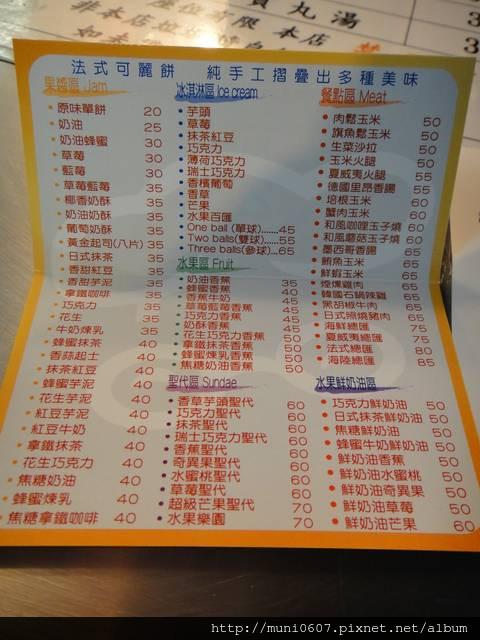 貢丸湯
座位有限 本店
非本店
如
法式可麗餅 純手工摺疊出多種美味
果醬區 Jam
原味單餅 20
奶油 25
奶油蜂蜜 30
草莓 30
藍莓 30
草莓藍莓 35
椰香奶酥 35
奶油奶酥 35
葡萄奶酥 35
黃金起司(八片) 35
日式抹茶 35
香甜紅豆 35
香甜芋泥 35
拿鐵咖啡 35
巧克力 35
花生 35
牛奶煉乳 35
蜂蜜抹茶 40
香蒜起士 40
抹茶紅豆 40
蜂蜜芋泥 40
花生芋泥 40
紅豆芋泥 40
紅豆牛奶 40
拿鐵抹茶 40
花生巧克力 40
焦糖奶油 40
蜂蜜煉乳 40
焦糖拿鐵咖啡 40
冰淇淋區 Ice cream
芋頭
草莓
抹茶紅豆
巧克力
薄荷巧克力
瑞士巧克力
香檳葡萄
香草
芒果
水果百匯
One ball (單球).......45
Two balls(雙球)......55
Three balls(參球)...65
水果區 Fruit
奶油香蕉 35
蜂蜜香蕉 40
香蕉牛奶 40
草莓藍莓香蕉 45
巧克力香蕉 45
奶酥香蕉 45
花生巧克力香蕉 50
拿鐵抹茶香蕉 50
蜂蜜煉乳香蕉 50
焦糖奶油香蕉 50
聖代區 Sundae
香草芋頭聖代 60
巧克力聖代 60
抹茶聖代 60
瑞士巧克力聖代 60
香蕉聖代 60
奇異果聖代 60
水蜜桃聖代 60
草莓聖代 60
超級芒果聖代 70
水果樂園 70
餐點區 Meat
肉鬆玉米 50
旗魚鬆玉米 50
生菜沙拉 50
玉米火腿 50
夏威夷火腿 55
德國里昂香腸 55
培根玉米 60
蟹肉玉米 60
和風咖哩玉子燒 60
和風蘑菇玉子燒 60
墨西哥香腸 65
鮪魚玉米 65
鮮蝦玉米 65
煙燻雞肉 65
韓國石鍋辣雞 65
黑胡椒牛肉 65
日式照燒豬肉 65
海鮮總匯 75
夏威夷總匯 75
法式總匯 80
海陸總匯 85
水果鮮奶油區
巧克力鮮奶油 50
日式抹茶鮮奶油 50
焦糖鮮奶油 50
蜂蜜牛奶鮮奶油 50
鮮奶油香蕉 50
鮮奶油水蜜桃 50
鮮奶油奇異果 50
鮮奶油草莓 50
鮮奶油芒果 60
http://muni0607.pixnet.net/album